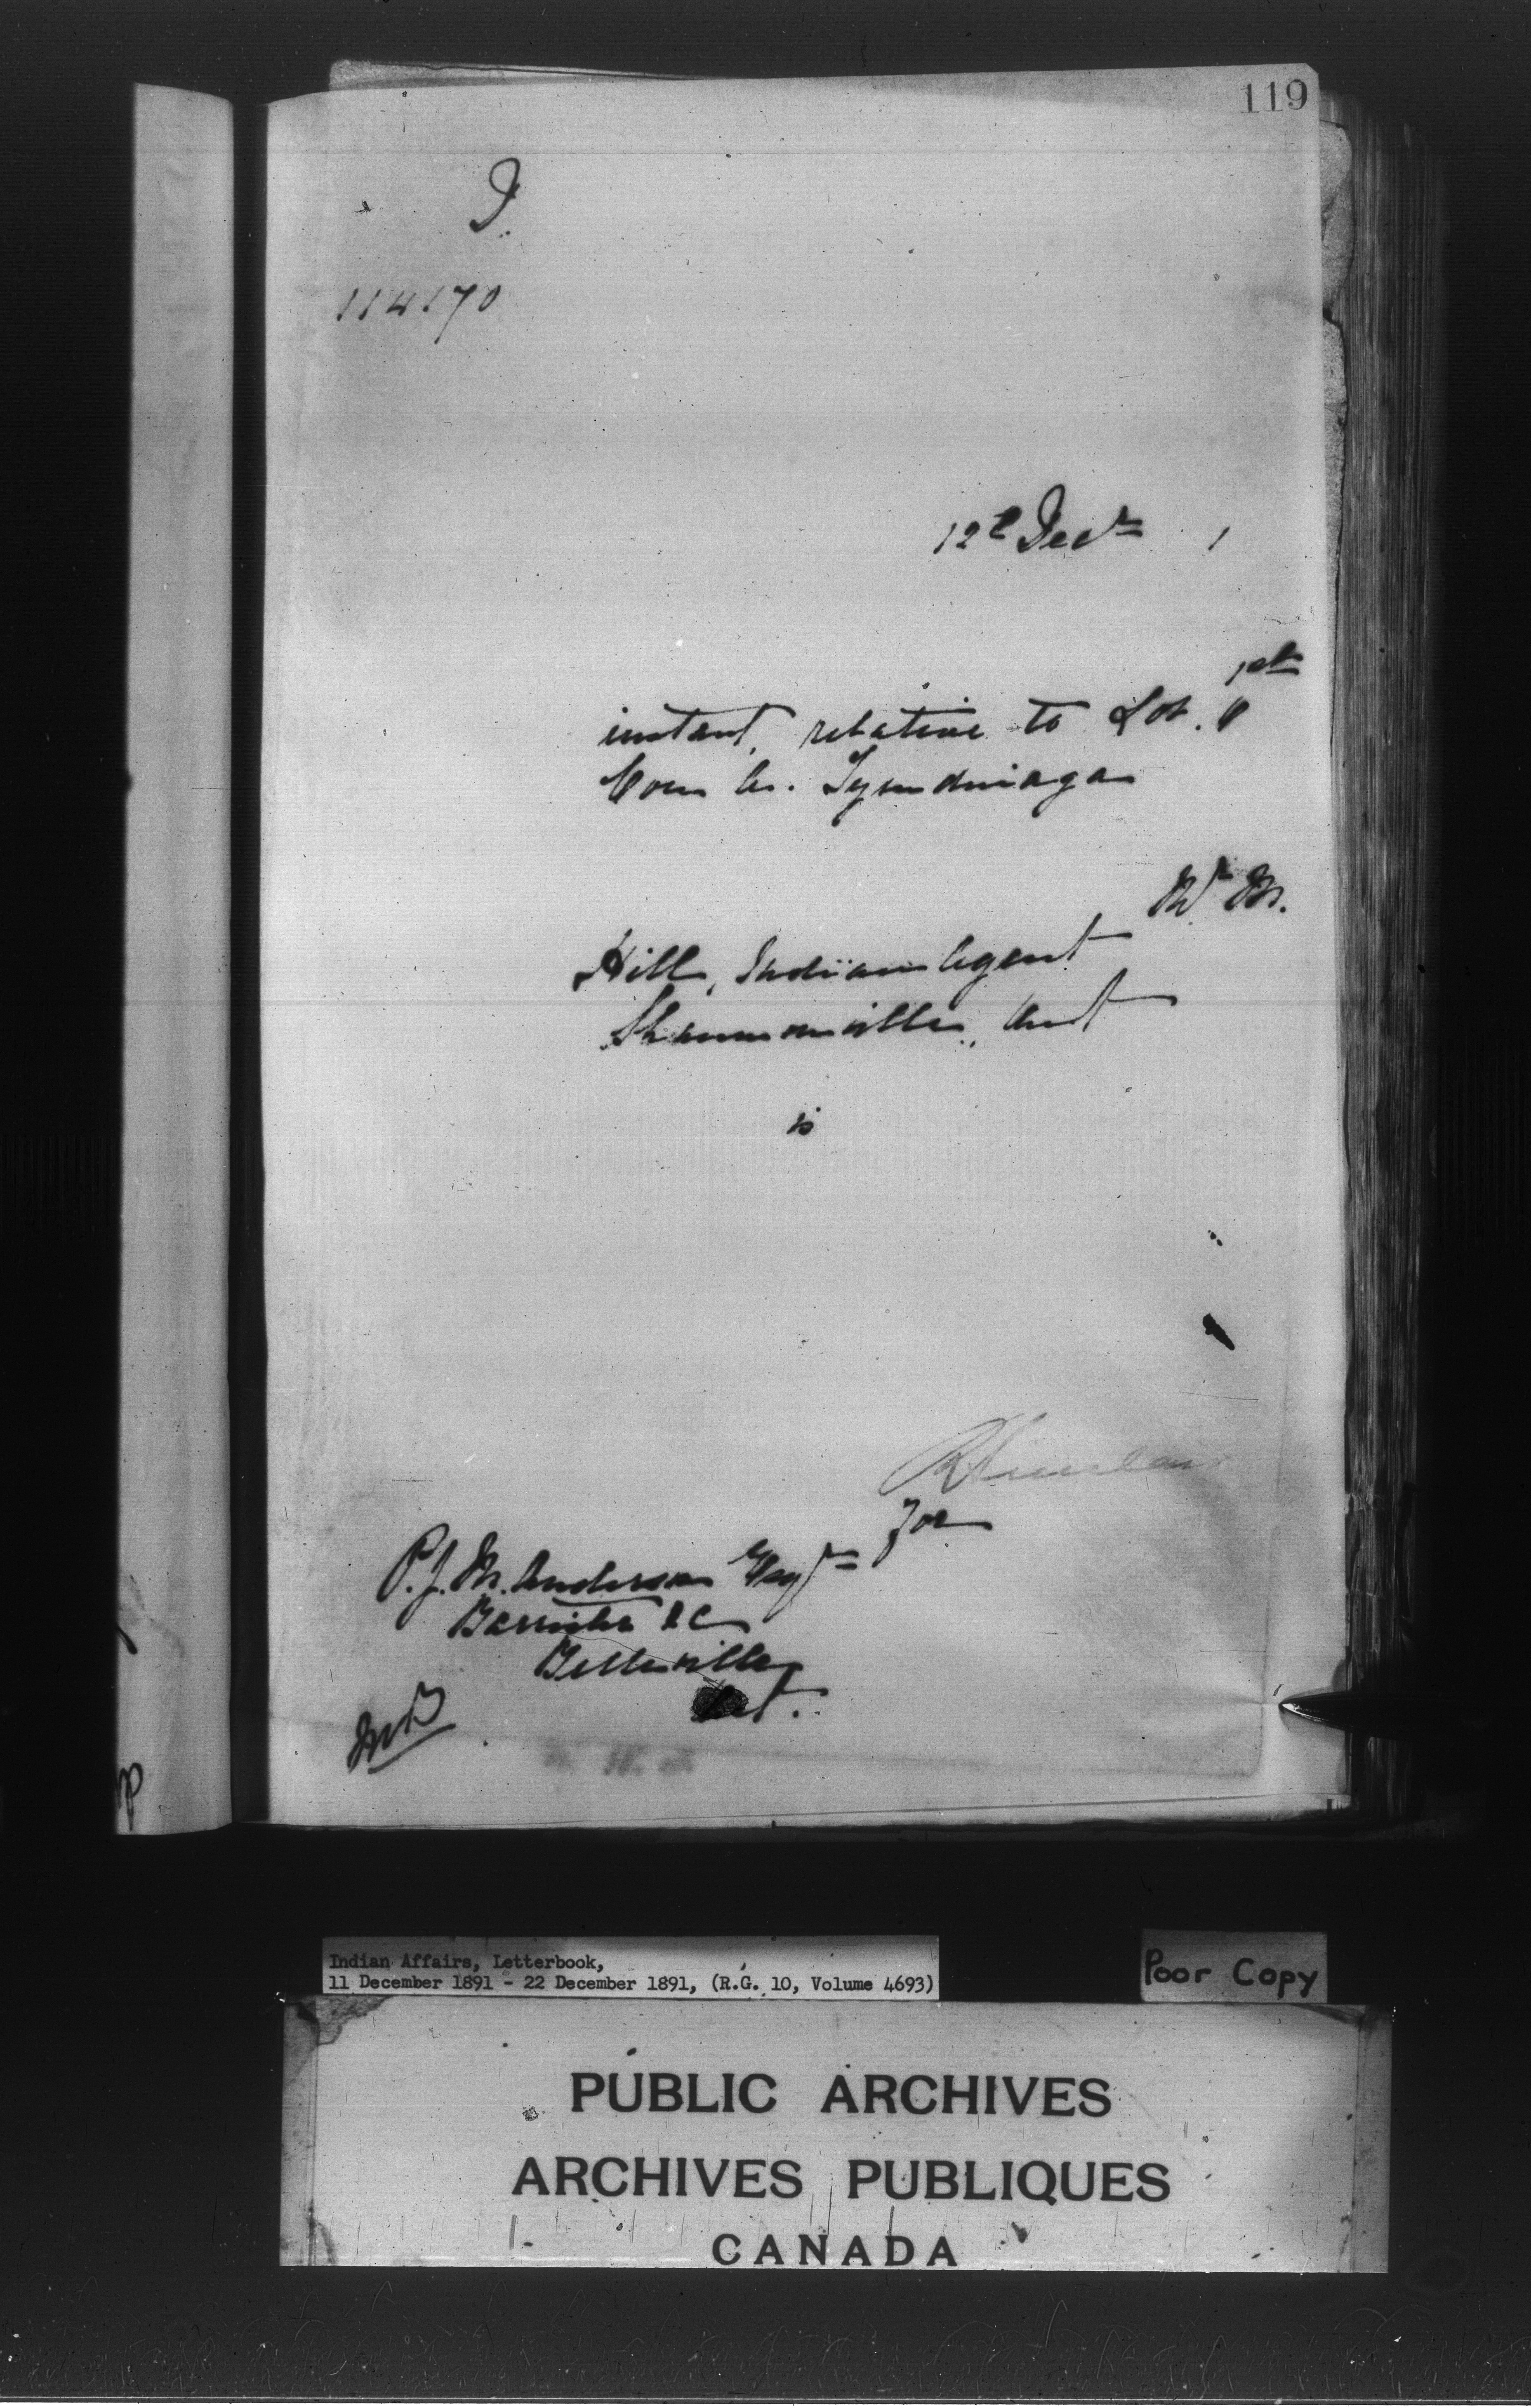 119
D.
114170
12th Decr 1
1st
instant, relative to Lot. 8
Con A. Tyendinaga
Wm M.
Hill, Indian Agent
Shannonville, Ont
is
For
P.J.M. Anderson Esqr
Barrister &C
Belleville
Ont.
Indian Affairs, Letterbook,
11 December 1891 - 22 December 1891, (R.G. 10, Volume 4693)
Poor Copy
PUBLIC ARCHIVES
ARCHIVES PUBLIQUES
CANADA